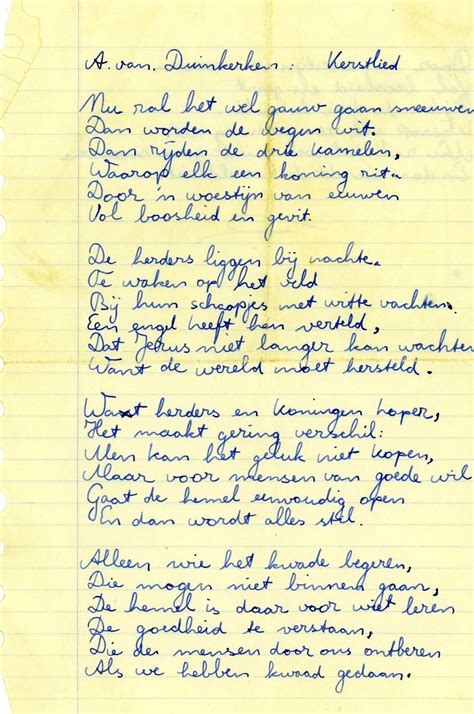 A. van. Duinkerken: Kerstlied
Nu zal het wel gauw gaan sneeuwen
Dan worden de wegen wit.
Dan rijden de drie kamelen,
Waarop elk een koning zit.
Door 'n woestijn van eeuwen
Vol boosheid en gevit.
De herders liggen bij nachte.
Te waken op het veld
Bij hun schaapjes met witte vachten.
Een engel heeft hen verteld,
Dat Jezus niet langer kan wachten
Want de wereld moet hersteld.
Want herders en koningen hopen,
Het maakt gering verschil:
Men kan het geluk niet kopen,
Maar voor mensen van goede wil
Gaat de hemel eenvoudig open
En dan wordt alles stil.
Alleen wie het kwade begeren,
Die mogen niet binnen gaan,
De hemel is daar voor wie leren
De goedheid te verstaan,
Die de mensen door ons ontberen
Als we hebben kwaad gedaan.